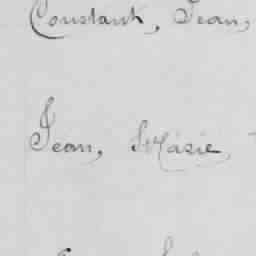 Constant, Jean,
Jean, Marie,